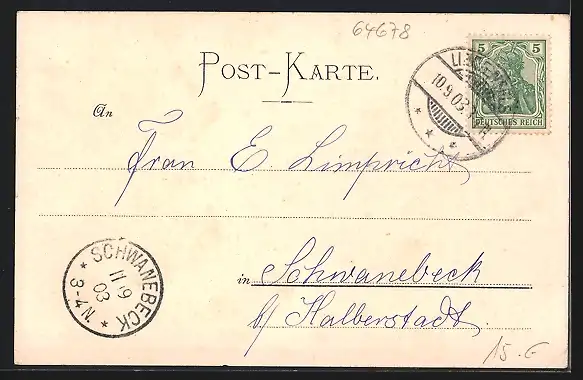 64678
POST-KARTE.
5 5
DEUTSCHES REICH
10.9.03
An
Frau E. Limpricht
in Schwanebeck
b/ Halberstadt.
* SCHWANEBECK *
11 9
03
3-4N.
15.-G